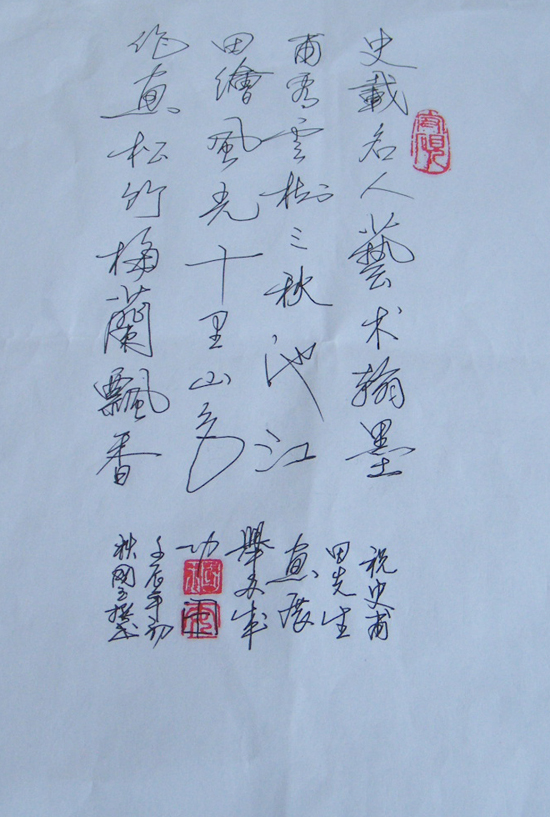 史載名人藝术翰墨
甫雲樹三秋池江
田繪風光十里山乡
作畫松竹梅蘭飄香
祝史甫
田先生
畫展
舉办成
功
壬辰年初
國